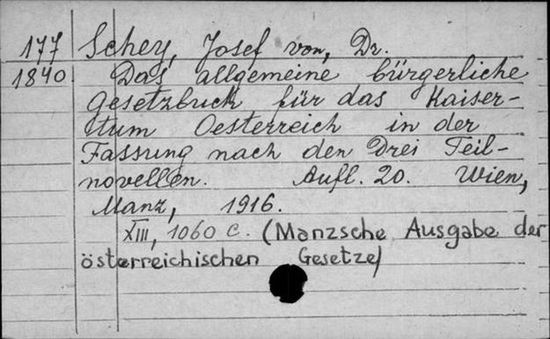 177 Schey, Josef von, Dr.
1840 Das allgemeine bürgerliche
Gesetzbuch für das Kaiser-
tum Oesterreich in der
Fassung nach den Drei Teil-
novellen. Aufl. 20. Wien,
Manz, 1916.
XIII, 1060 c. (Manzsche Ausgabe der
österreichischen Gesetze)